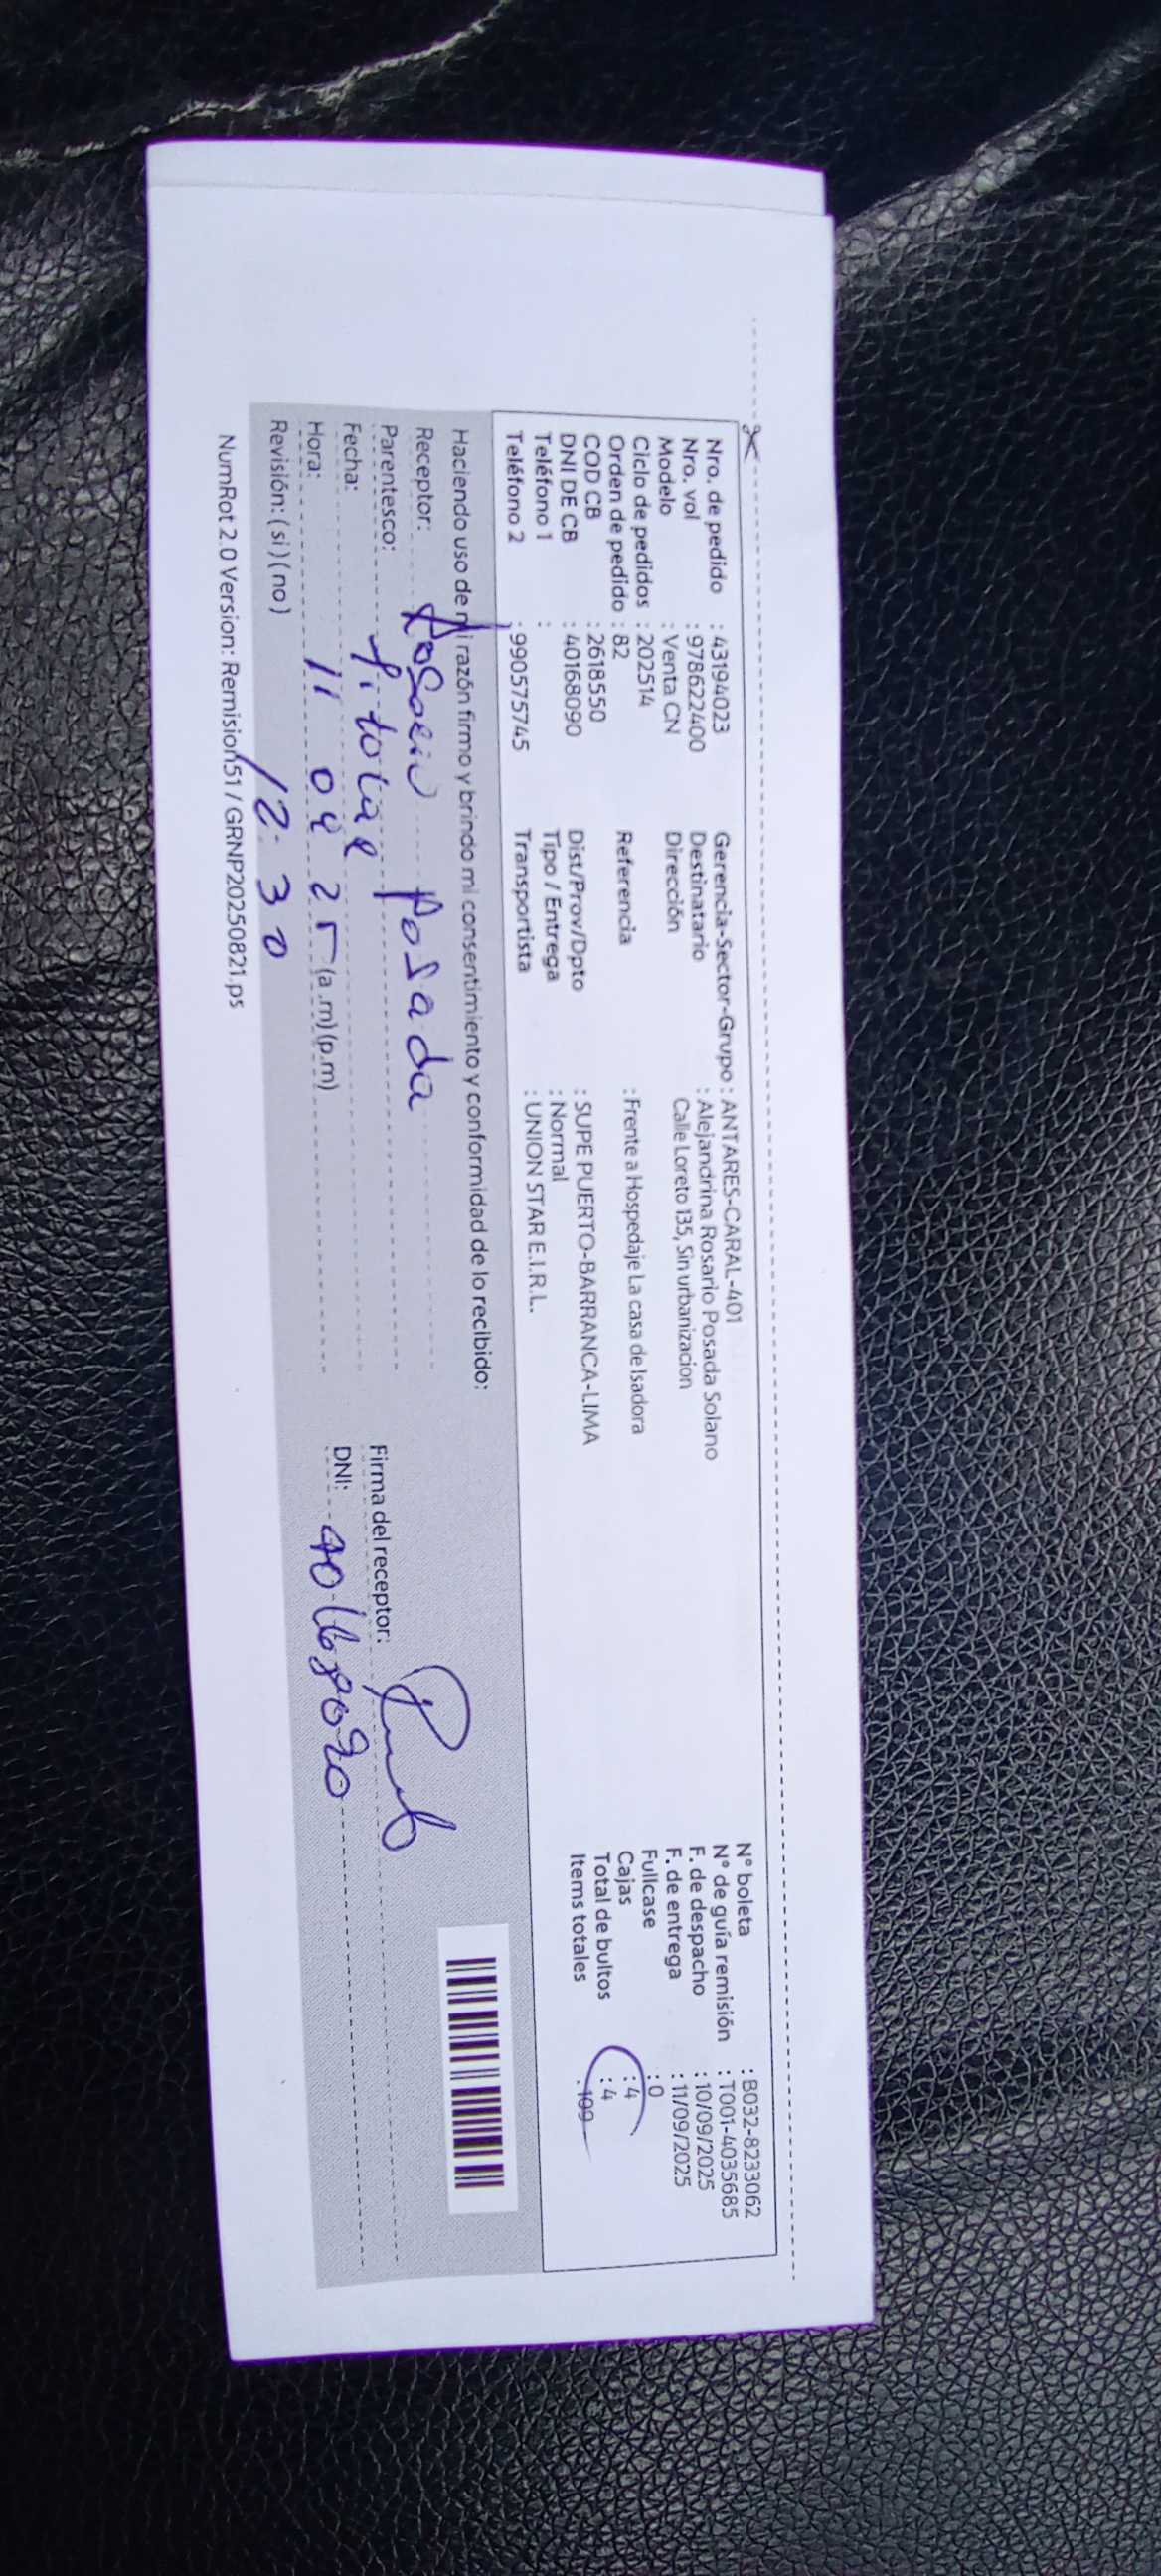 Nro. de pedido : 43194023
Nro. vol : 978622400
Modelo : Venta CN
Ciclo de pedidos : 202514
Orden de pedido : 82
COD CB : 2618550
DNI DE CB : 40168090
Teléfono 1 :
Teléfono 2 : 990575745
Gerencia-Sector-Grupo : ANTARES-CARAL-401
Destinatario : Alejandrina Rosario Posada Solano
Dirección Calle Loreto 135, Sin urbanizacion
Referencia : Frente a Hospedaje La casa de Isadora
Dist/Prov/Dpto : SUPE PUERTO-BARRANCA-LIMA
Tipo / Entrega : Normal
Transportista : UNION STAR E.I.R.L.
N° boleta : B032-8233062
N° de guía remisión : T001-4035685
F. de despacho : 10/09/2025
F. de entrega : 11/09/2025
Fullcase : 0
Cajas : 4
Total de bultos : 4
Items totales : 109
Haciendo uso de mi razón firmo y brindo mi consentimiento y conformidad de lo recibido:
Receptor: Rosario Posada
Parentesco: titular
Fecha: 11 09 25
Hora: 12:30 (a.m) (p.m)
Revisión: ( si ) ( no )
Firma del receptor:
DNI: 40168090
NumRot 2.0 Version: Remision51 / GRNP20250821.ps